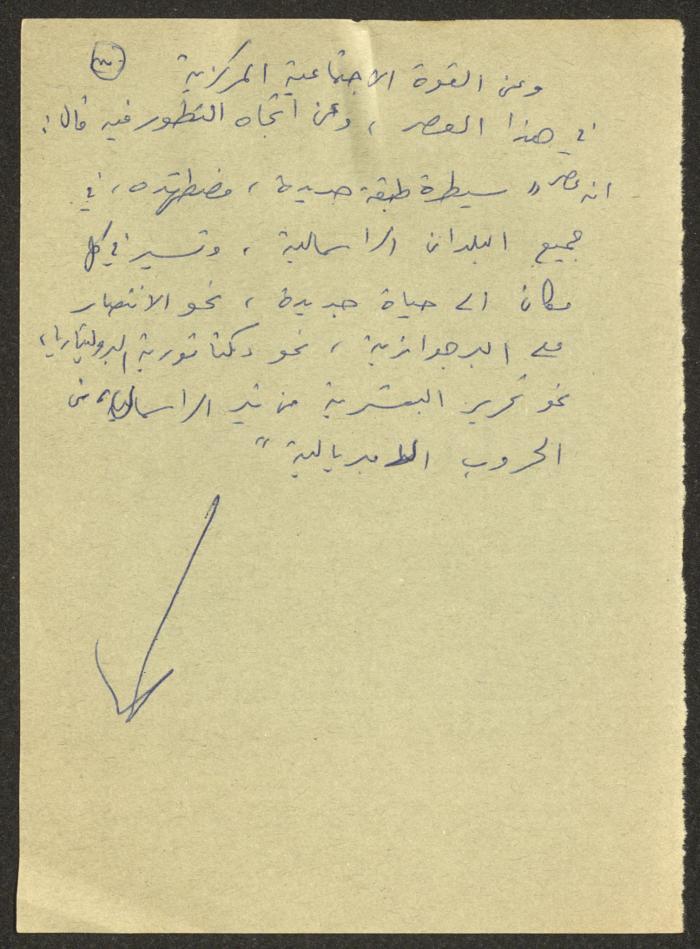 وعن القوة الاجتماعية المركزية
في هذا العصر ، وعن اتجاه التطور فيه قال :
انه عصر " سيطرة طبقة جديدة ، مضطهَده ، في
جميع البلدان الراسمالية ، وتسير في كل
مكان الى حياة جديدة ، نحو الانتصار
على البرجوازية ، نحو دكتاتورية البروليتاريا ،
نحو تحرير البشرية من نير الراسمالية ، من
الحروب الامبريالية "